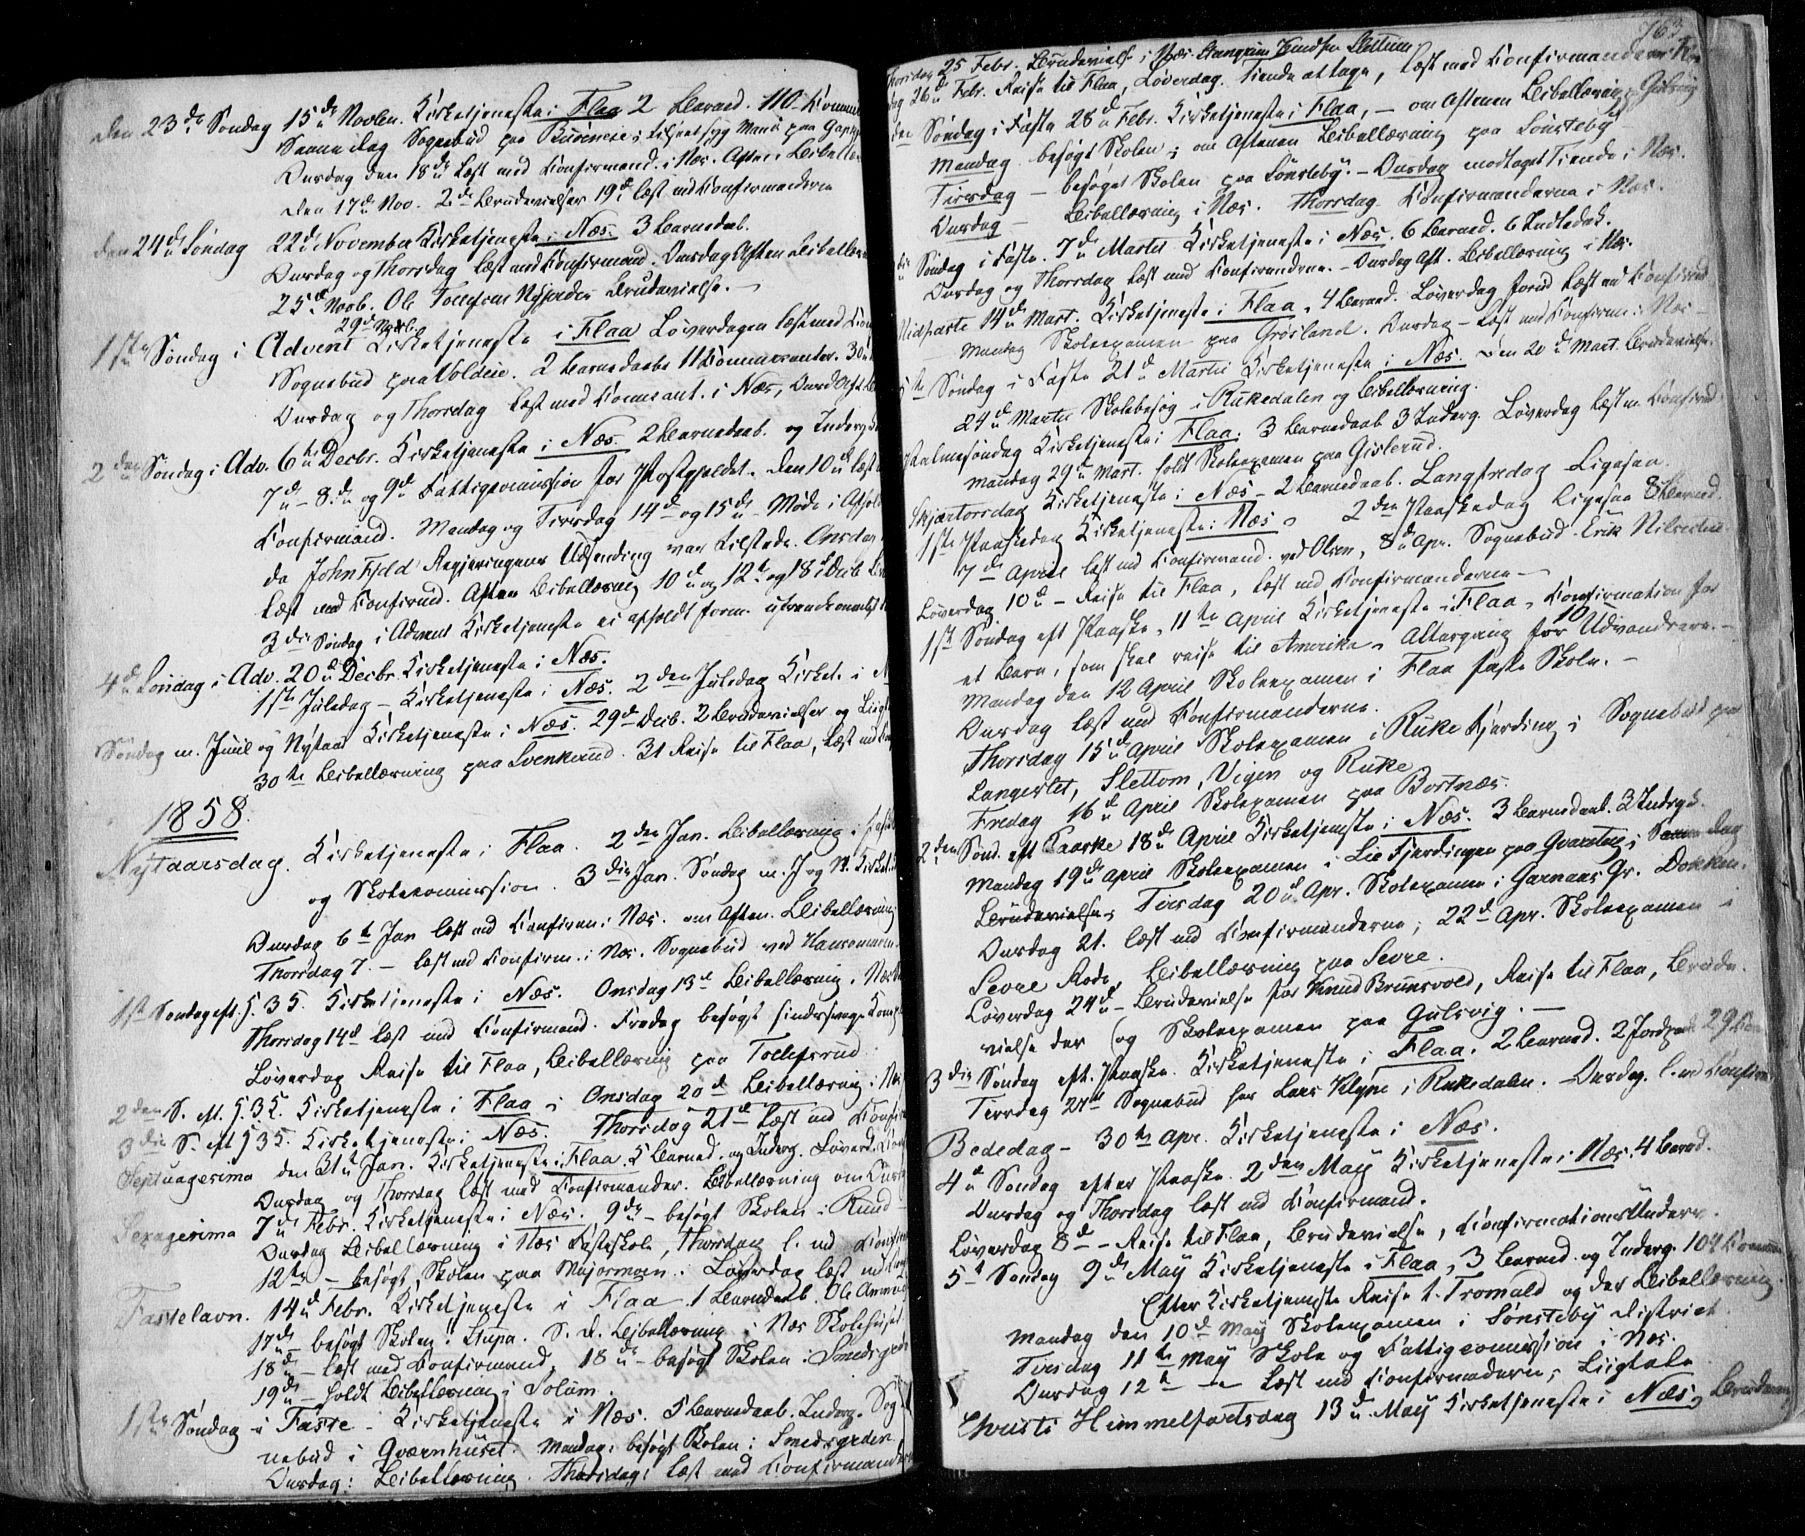 Den 23de Søndag 15de Novbr. Kirketjeneste i Flaa 2 Barned. 110
Samme Dag Sognebud paa
Onsdag den 18de læst med Confirmand. i Næs. Aften Bibellæ
den 17de Nov. 2de Brudevielser 19de læst med Confirmanderne
den 24de Søndag 22de November Kirketjeneste i Næs. 3 Barnedaab.
Onsdag og Thorsdag læst med Confirmand. Onsdag Aften Bibellæs
25de Novb. Ole Brudevielse.
29de Novb.
1ste Søndag i Advent Kirketjeneste i Flaa Løverdagen læst med
Sognebud paa 2 Barnedaab 11 Communicanter. 30
Onsdag og Thorsdag læst med i Næs, Onsd Aft
2den Søndag i Adv. 6te Decbr. Kirketjeneste i Næs. 2 Barnedaab. og
7de - 8de og 9de Fattigcommission for Præstgjeldet. Den 10de læst
Confirmand. Mandag og Tirsdag 14de og 15de Møde i
da John Fydd Regjeringens Udsending var tilstede. Onsdag
læst med Confirmd. Aften Bibellæsning 10de og 12te og 18de Decb
3die Søndag i Advent Kirketjeneste ei afholdt form.
4de Søndag i Adv. 20de Decbr. Kirketjeneste i Næs.
1ste Juledag - Kirketjeneste i Næs. 2den Juledag Kirket. i
Søndag m. Juul og Nytaar Kirketjeneste i Næs. 29de Decb. 2 Brudevielser og
30te Bibellæsning paa Svenkerud. 31 Reise til Flaa, læst med
1858.
Nytaarsdag. Kirketjeneste i Flaa. 2den Jan. Bibellæsning i
og Skolecommission. 3die Jan. Søndag m. J og N. Kirket.
Onsdag 6te Jan læst med Confirm. i Næs. om Aften. Bibellæsning
Thorsdag 7. - læst med Confirm. i Næs. Sognebud ved
1ste Søndag eft. H.3K. Kirketjeneste i Næs. Onsdag 13de Bibellæsning i Næs
Thorsdag 14de læst med Confirmand. Fredag besøgt
Løverdag Reise til Flaa, Bibellæsning paa Tollefsrud
2den S. eft. H.3K. Kirketjeneste i Flaa Onsdag 20de Bibellæsning i
3die S. eft H3K. Kirketjeneste i Næs. Thorsdag 21de læst med
Septuagesima den 31te Jan. Kirketjeneste i Flaa. 5 Barned. og Inderg. Løverd.
Onsdag og Thorsdag læst med Confirmander. Bibellæsning om
Sexagesima 7de Febr. Kirketjeneste i Næs. 9de - besøgt Skolen i Rund
Onsdag Bibellæsning i Næs Fastskole, Thorsdag l. med
12te - besøgt Skolen paa Majormoen. Løverdag læst med
Fastelavn. 14de Febr. Kirketjeneste i Flaa 1 Barnedaab. Ole
17de besøgt Skolen i Stupa. S. D. Bibellæsning i Næs Skolehuset
18de - læst med Confirmand. 18de - besøgt Skolen i
19de - holdt Bibellæsning i Solum.
1ste Søndag i Faste - Kirketjeneste i Næs. 5 Barnedaab. Inderg. Sog
nebud i Qværnhuset. Mandag: besøgt Skolen i Smedsgarden
Onsdag: Bibellæsning. Thorsdag: læst med Confirmander
763
Thorsdag 25 Febr. Brudevielse i Næs. Knudsen Slettum
26de Febr. Reise til Flaa, Løverdag. Tiende at tage, læst med Confirmanderne
Søndag i Faste 28de Febr. Kirketjeneste i Flaa, - om Aftenen Bibellæsning Gulsvig
Mandag besøgt Skolen; om Aftenen Bibellæsning paa Sønsteby
Tirsdag - besøgt Skolen paa Sønsteby. - Onsdag modtaget Tiende i Næs.
Onsdag - Bibellæsning i Næs. Thorsdag Confirmanderne i Næs.
Søndag i Faste. 7de Marts Kirketjeneste i Næs. 6 Barned. 6 Indledet.
Onsdag og Thorsdag læst med Confirmanderne. - Onsdag Aft. Bibellæsning i Næs.
Midfaste 14de Mart. Kirketjeneste i Flaa. 4 Barned. Løverdag forud læst med Confirmd
Mandag Skoleexamen paa Grøsland. Onsdag - læst med Confirm. i Næs -
5te Søndag i Faste 21de Martii Kirketjeneste i Næs. Den 20de Mart. Brudevielse.
24de Martii Skolebesøg i Rukedalen og Bibellæsning.
Palmesøndag Kirketjeneste i Flaa. 3 Barnedaab 3 Inderg. Løverdag læst m. Confirmd
Mandag 29de Mart. holdt Skoleexamen paa Gislerud.
Skjærtorsdag Kirketjeneste i Næs - 2 Barnedaab. Langfredag Ligesaa.
1ste Paaskedag Kirketjeneste: Næs. 2den Paaskedag ligesaa 8 Barned.
7de April læst med Confirmand. ved Olsen, 8de Apr. Sognebud Erik
Løverdag 10de - Reise til Flaa, læst med Confirmanderne -
1ste Søndag eft Paaske, 11te April Kirketjeneste i Flaa, Confirmation for
et Barn, som skal reise til Amerika, Altergang for 10 Udvandrere. -
Mandag den 12 April Skoleexamen i Flaa faste Skole. -
Onsdag læst med Confirmanderne.
Thorsdag 15de April Skoleexamen i Ruke Fjerding; Sognebud paa
Langeslet, Slettom, Vigen og Ruke
Fredag 16de April Skoleexamen paa Børtnæs.
2den Sønd. eft Paaske 18de April Kirketjeneste i Næs. 3 Barnedaab. 3 Inderg.
Mandag 19de April Skoleexamen i Lie Fjerdingen paa; Samme Dag
Brudevielse; Tirsdag 20de Apr. Skoleexamen i Garnaas Gr. Dokken.
Onsdag 21. læst med Confirmanderne; 22de Apr. Skoleexamen i
Sevre Rode, Bibellæsning paa Sevre.
Løverdag 24de - Brudevielse for Knud Brunsvold, Reise til Flaa, Brude-
vielse der (og Skoleexamen paa Gulsvig. -
3die Søndag eft. Paaske. Kirketjeneste i Flaa. 2 Barned. 2 Jordp. 29
Tirsdag 27de Sognebud hos Lars Klype i Rukedalen. Onsdag. l. med Confirm.
Bededag - 30te Apr. Kirketjeneste i Næs.
4de Søndag efter Paaske. 2den Maij Kirketjeneste i Næs. 4 Barnd.
Onsdag og Thorsdag læst med Confirmand.
Løverdag 8de - Reise til Flaa, Brudevielse, Confirmations Underv.
5te Søndag 9de Maij Kirketjeneste i Flaa, 3 Barned. og Inderg. 104
Efter Kirketjeneste Reise t. Tromald og der Bibellæsning.
Mandag den 10de Maij Skoleexamen i Sønsteby District.
Tirsdag 11te Maij Skole og Fattigcommission i Næs.
Onsdag 12te - læst med Confirmanderne, Liigtale
Christi Himmelfartsdag 13de Maij Kirketjeneste i Næs,